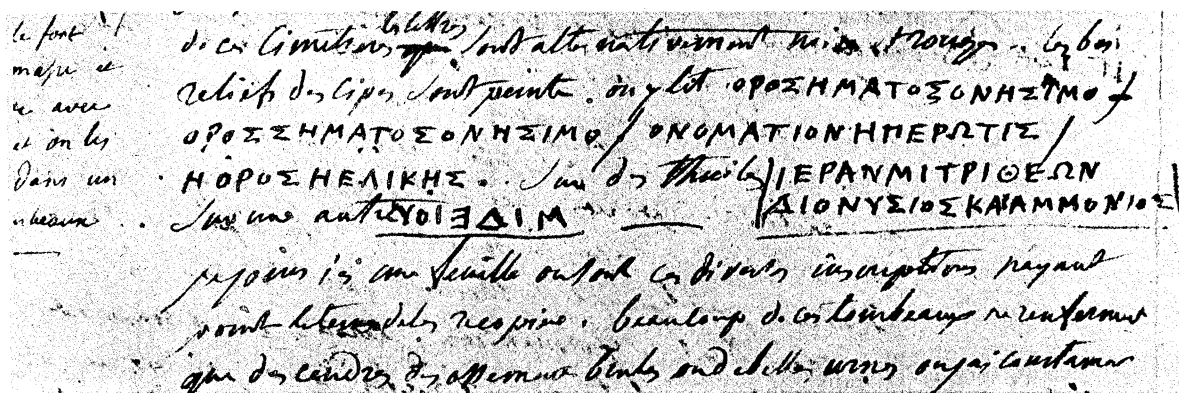 le font
mapu et
avec
et on les
dans un
de ces Cimetieres les lettres sont alternativement rouges. les bas
reliefs des Cipes sont peints. on y lit ΟΡΟΣΗΜΑΤΟΣΟΝΗΣΙΜΟ /
ΟΡΟΣΣΗΜΑΤΟΣΟΝΗΣΙΜΟ / ΟΝΟΜΑΤΙΟΝΗΠΕΡΩΤΙΣ /
ΗΟΡΟΣΗΕΛΙΚΗΣ. Sur des Thuiles / ΙΕΡΑΝΜΙΤΡΙΘΕΩΝ
Sur une autre ΥΟΙΞΔΙΜ — / ΔΙΟΝΥΣΙΟΣΚΑΙΑΜΜΟΝΙΟΣ
je joins ici une feuille ou sont ces diverses inscriptions n'ayant
point le tems de les recopier. beaucoup de ces tombeaux ne renferment
que des cendres des ossements brulés ou de belles urnes ou j'ai constament